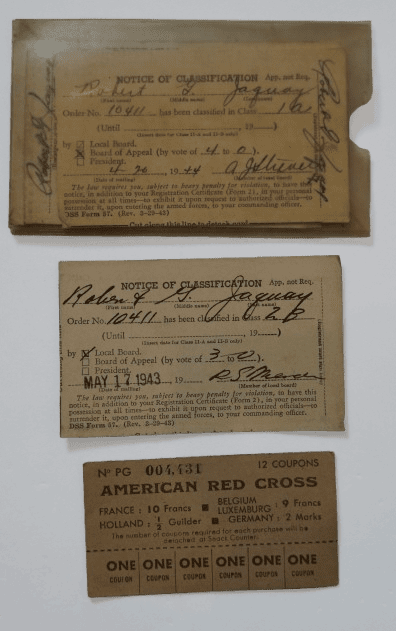 NOTICE OF CLASSIFICATION App. not Req.
Robert G. Jaquay
(First name) (Middle name) (Last name)
Order No. 10411 has been classified in Class 1a
(Until , 19 )
(Insert date for Class II-A and II-B only)
by Local Board.
Board of Appeal (by vote of 4 to 0).
President.
4-26, 1944
(Date of mailing) (Member of local board)
The law requires you, subject to heavy penalty for violation, to have this
notice, in addition to your Registration Certificate (Form 2), in your personal
possession at all times—to exhibit it upon request to authorized officials—to
surrender it, upon entering the armed forces, to your commanding officer.
DSS Form 57. (Rev. 3-29-43)
Cut along this line to detach card
Robert G. Jaquay
Robert G. Jaquay
NOTICE OF CLASSIFICATION App. not Req.
Robert G. Jaquay
(First name) (Middle name) (Last name)
Order No. 10411 has been classified in Class 2B
(Until , 19 )
(Insert date for Class II-A and II-B only)
by Local Board.
Board of Appeal (by vote of 3 to 0).
President.
MAY 17 1943, 19
(Date of mailing) (Member of local board)
The law requires you, subject to heavy penalty for violation, to have this
notice, in addition to your Registration Certificate (Form 2), in your personal
possession at all times—to exhibit it upon request to authorized officials—to
surrender it, upon entering the armed forces, to your commanding officer.
DSS Form 57. (Rev. 3-29-43)
Nº PG 004,431 12 COUPONS
AMERICAN RED CROSS
FRANCE : 10 Francs ■ BELGIUM LUXEMBURG : 9 Francs
HOLLAND : 1/2 Guilder ■ GERMANY : 2 Marks
The number of coupons required for each purchase will be
detached at Snack Counter.
ONE ONE ONE ONE ONE ONE
COUPON COUPON COUPON COUPON COUPON COUPON